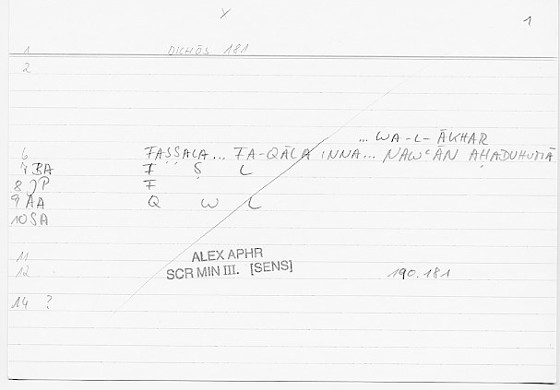 X
1
1 DICHŌS 181
2
... WA-L-ĀKHAR
6 FAṢṢALA... FA-QĀLA INNA... NAWʿĀN AḤADUHUMĀ
7 BA F Ṣ L
8 JP F
9 AA Q W L
10 SA
11 ALEX APHR
12 SCR MIN III. [SENS] 190.181
14 ?